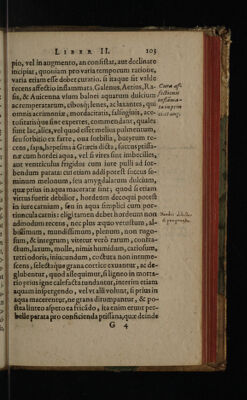 LIBER II. 103
pio, vel in augmento, an consistat, aut declinare
incipiat, quoniam pro varia temporum ratione,
varia etiam esse debet curatio. si itaque sit valde
recens affectio inflammata, Galenus, Aetius, Ra-
sis, & Auicenna vsum balnei aquarum dulcium
ac temperatarum, cibosq; lenes, ac laxantes, qui
omnis acrimoniæ, mordacitatis, salsuginis, po-
tus sint expertes, commendant, quales
sunt lac, alica, vel quod esset melius pulmentum,
seu sorbitio ex farre, oua sorbilia, butyrum re-
cens, succus ptissa-
næ cum hordei aqua, vel si vires sint imbecilles,
aut ventriculus frigidus cum iure pulli ad sor-
bendum paratus cui etiam addi potest succus se-
minum melonum, seu amygdalarum dulcium,
quæ prius in aqua maceratæ sint; quod si etiam
virtus fuerit debilior, hordeum decoqui potest
in iure carnium, seu in aqua simplici cum por-
tiuncula carnis: eligi tamen debet hordeum non
admodum recens, nec plus æquo vetustum, al-
bissimum, mundissimum, pinum, non rugo-
sum, & integrum, vitetur verò ratum, confra-
ctum, laxum, molle, nimis humidum, cariosum,
tetri odoris, insucundum, coctura non intume-
scens, selectaque grana cortice exuantur, ac de-
glubentur, quod assequimur, si ligneo in morta-
rio prius igne calefacta tundantur, interim etiam
aquam inspergendo, vel vt alij volunt, si prius in
aqua macerentur, ne grana dirumpantur, & po-
stea linteo aspero ea fricãdo, ita enim erunt per-
belle parata pro conficienda ptissana, quæ deinde
G 4
Cura af-
fectionis
inflama-
tæ in prin
cipio
Hordei delectus
& præparatio.